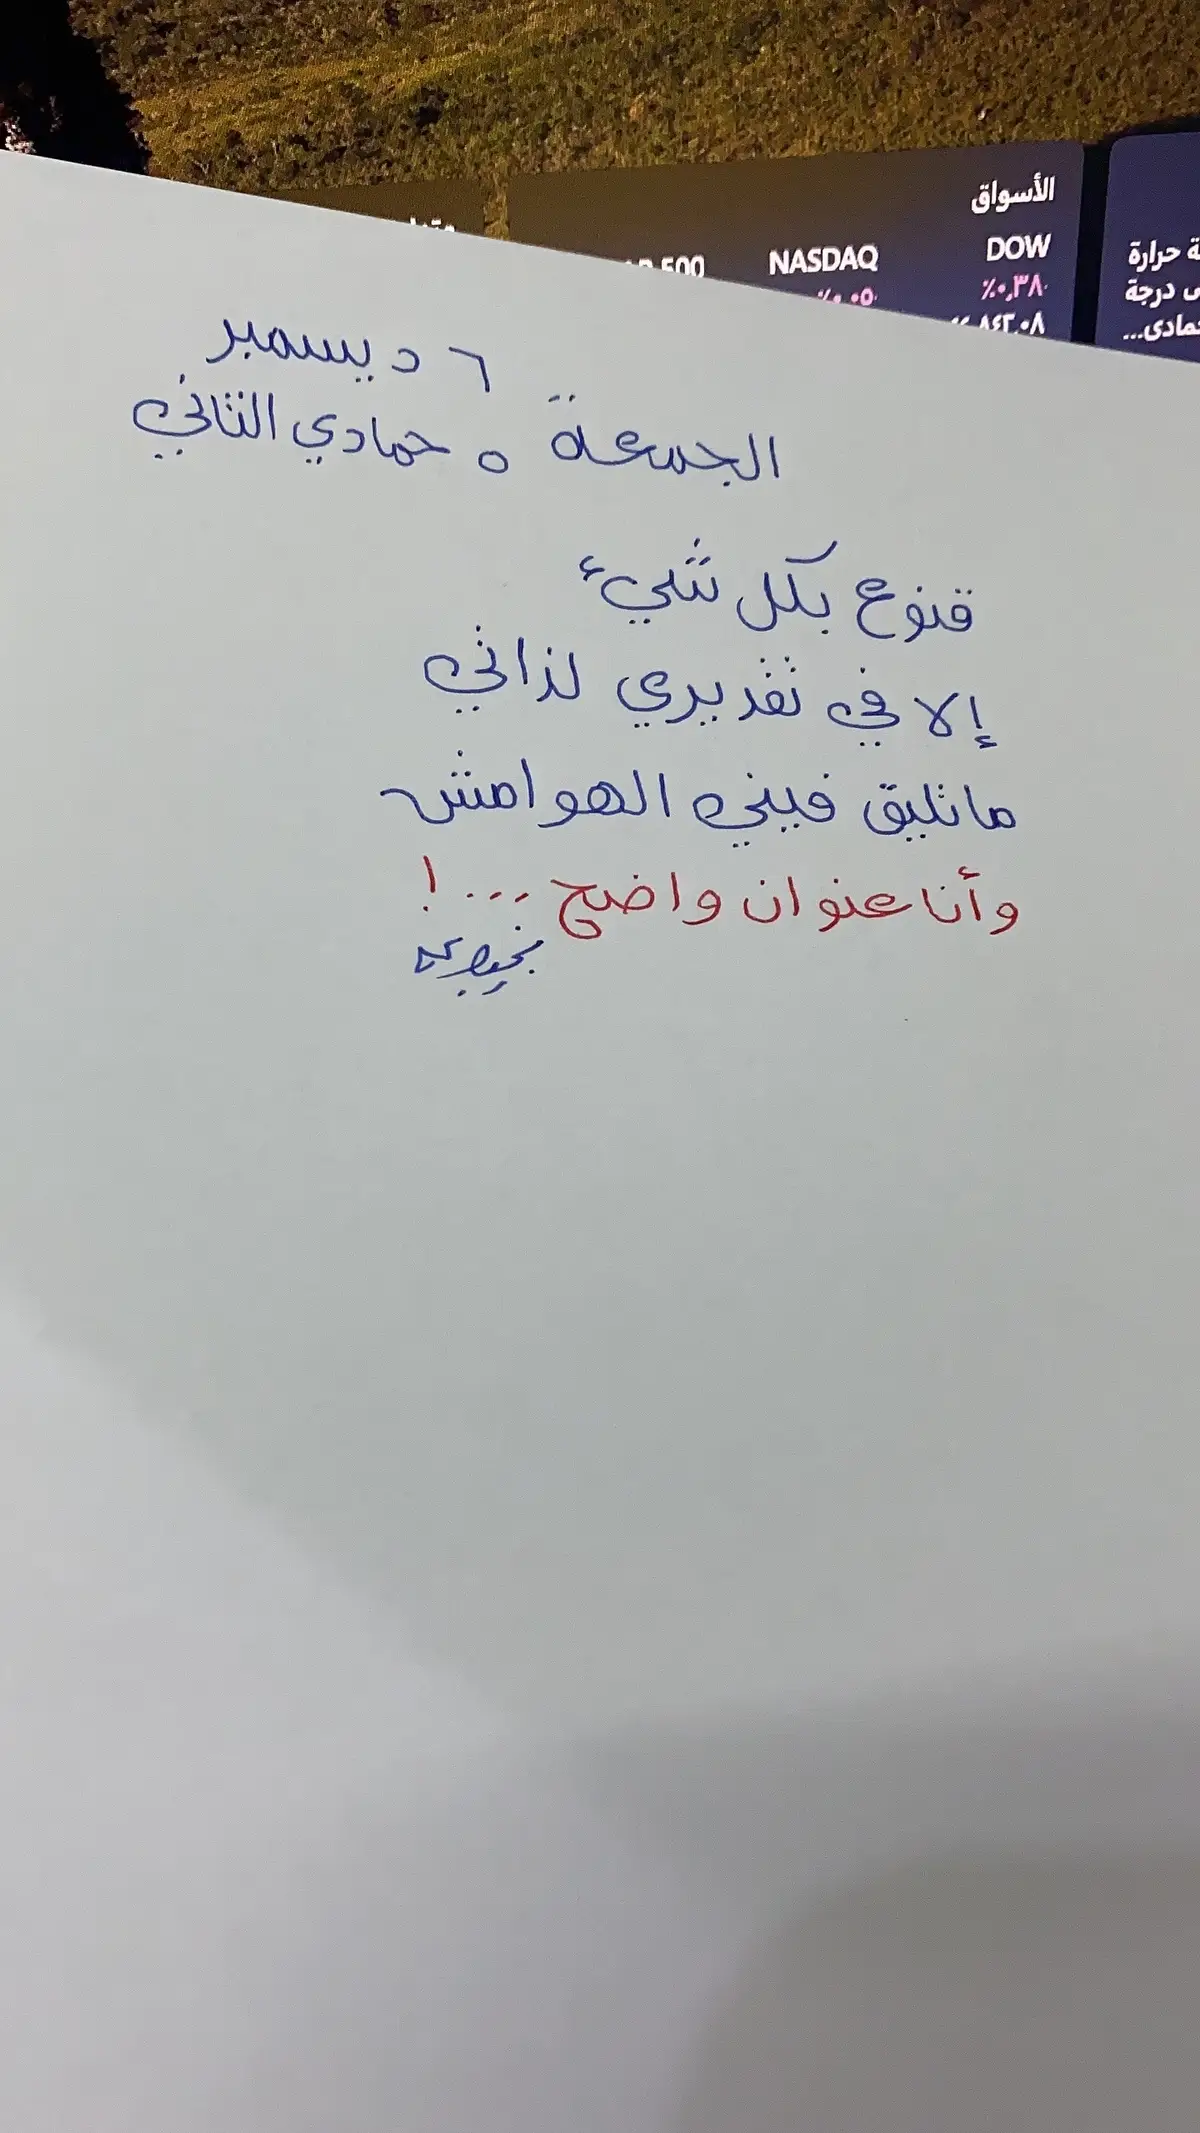 الأسواق
DOW
NASDAQ
500
٪٠,٣٨
ة حرارة
درجة
٦ ديسمبر
الجمعة ٥ جمادي الثاني
قنوع بكل شيء
إلا في تقديري لذاتي
ماتليق فيني الهوامش
وأنا عنوان واضح ...!